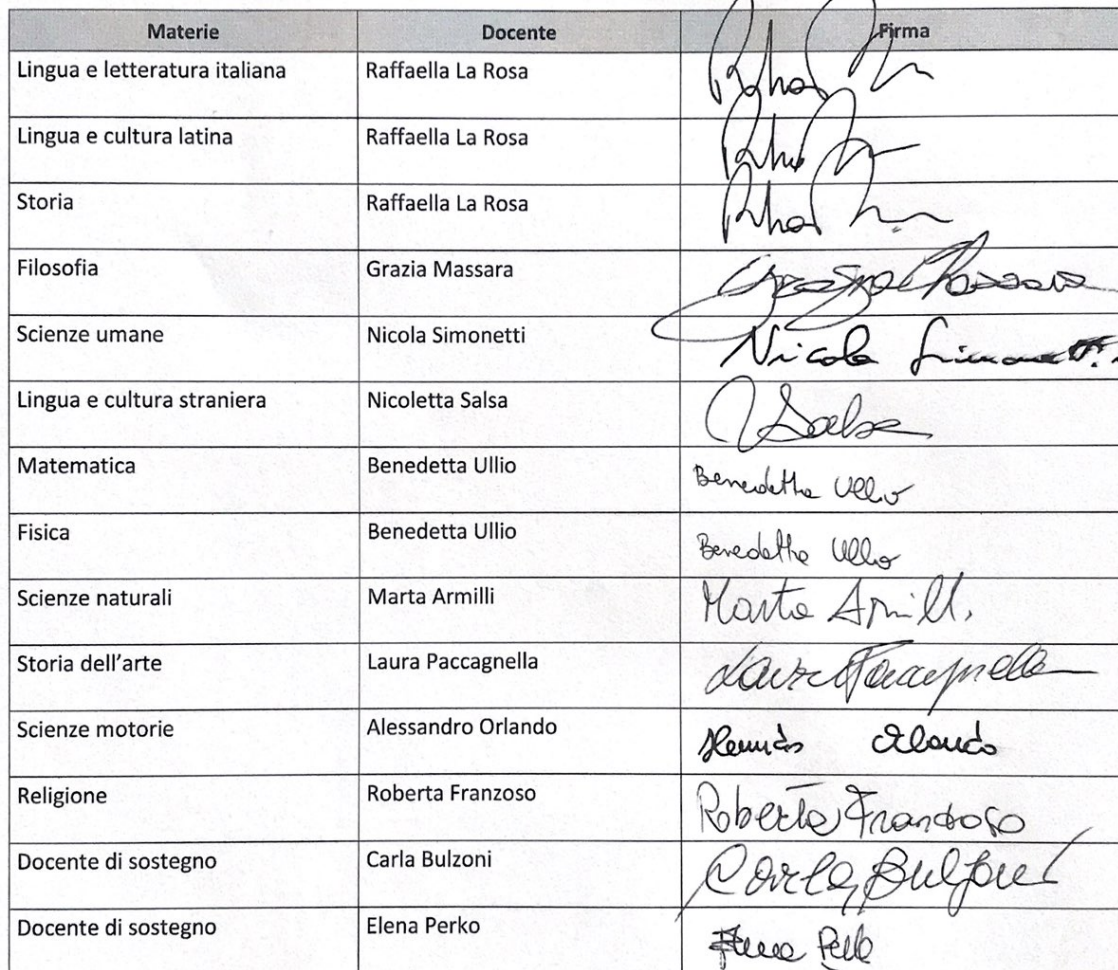 Materie Docente Firma
Lingua e letteratura italiana Raffaella La Rosa
Lingua e cultura latina Raffaella La Rosa
Storia Raffaella La Rosa
Filosofia Grazia Massara Grazia Massara
Scienze umane Nicola Simonetti Nicola Simonetti
Lingua e cultura straniera Nicoletta Salsa Salsa
Matematica Benedetta Ullio Benedetta Ullio
Fisica Benedetta Ullio Benedetta Ullio
Scienze naturali Marta Armilli Marta Armilli
Storia dell’arte Laura Paccagnella Laura Paccagnella
Scienze motorie Alessandro Orlando Orlando
Religione Roberta Franzoso Roberta Franzoso
Docente di sostegno Carla Bulzoni Carla Bulzoni
Docente di sostegno Elena Perko